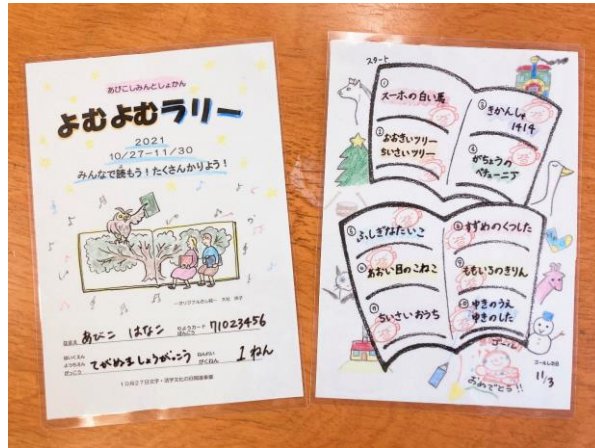 あびこしみんとしょかん
よむよむラリー
2021
10/27-11/30
みんなで読もう！たくさんかりよう！
なまえ あびこ はなこ 71023456
てがぬましょうがっこう 1ねん
10月27日文字・活字文化の日関連事業
スタート
① スーホの白い馬
② おおきいツリー
ちいさいツリー
③ きかんしゃ
1414
④ がちょうの
ペチューニア
⑤ ふしぎなたいこ
⑥ あおい目のこねこ
⑦ ちいさいおうち
⑧ すずめのくつした
⑨ ももいろのきりん
⑩ ゆきのうえ
ゆきのした
ゴール
おめでとう!!
ゴールした日
11/3